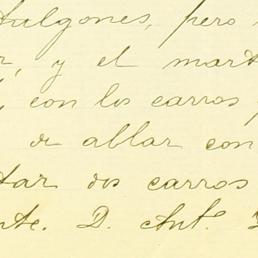 fulgones, pero
, y el mart
con los carros
de ablar con
tar dos carros
nte. D. Ant.º